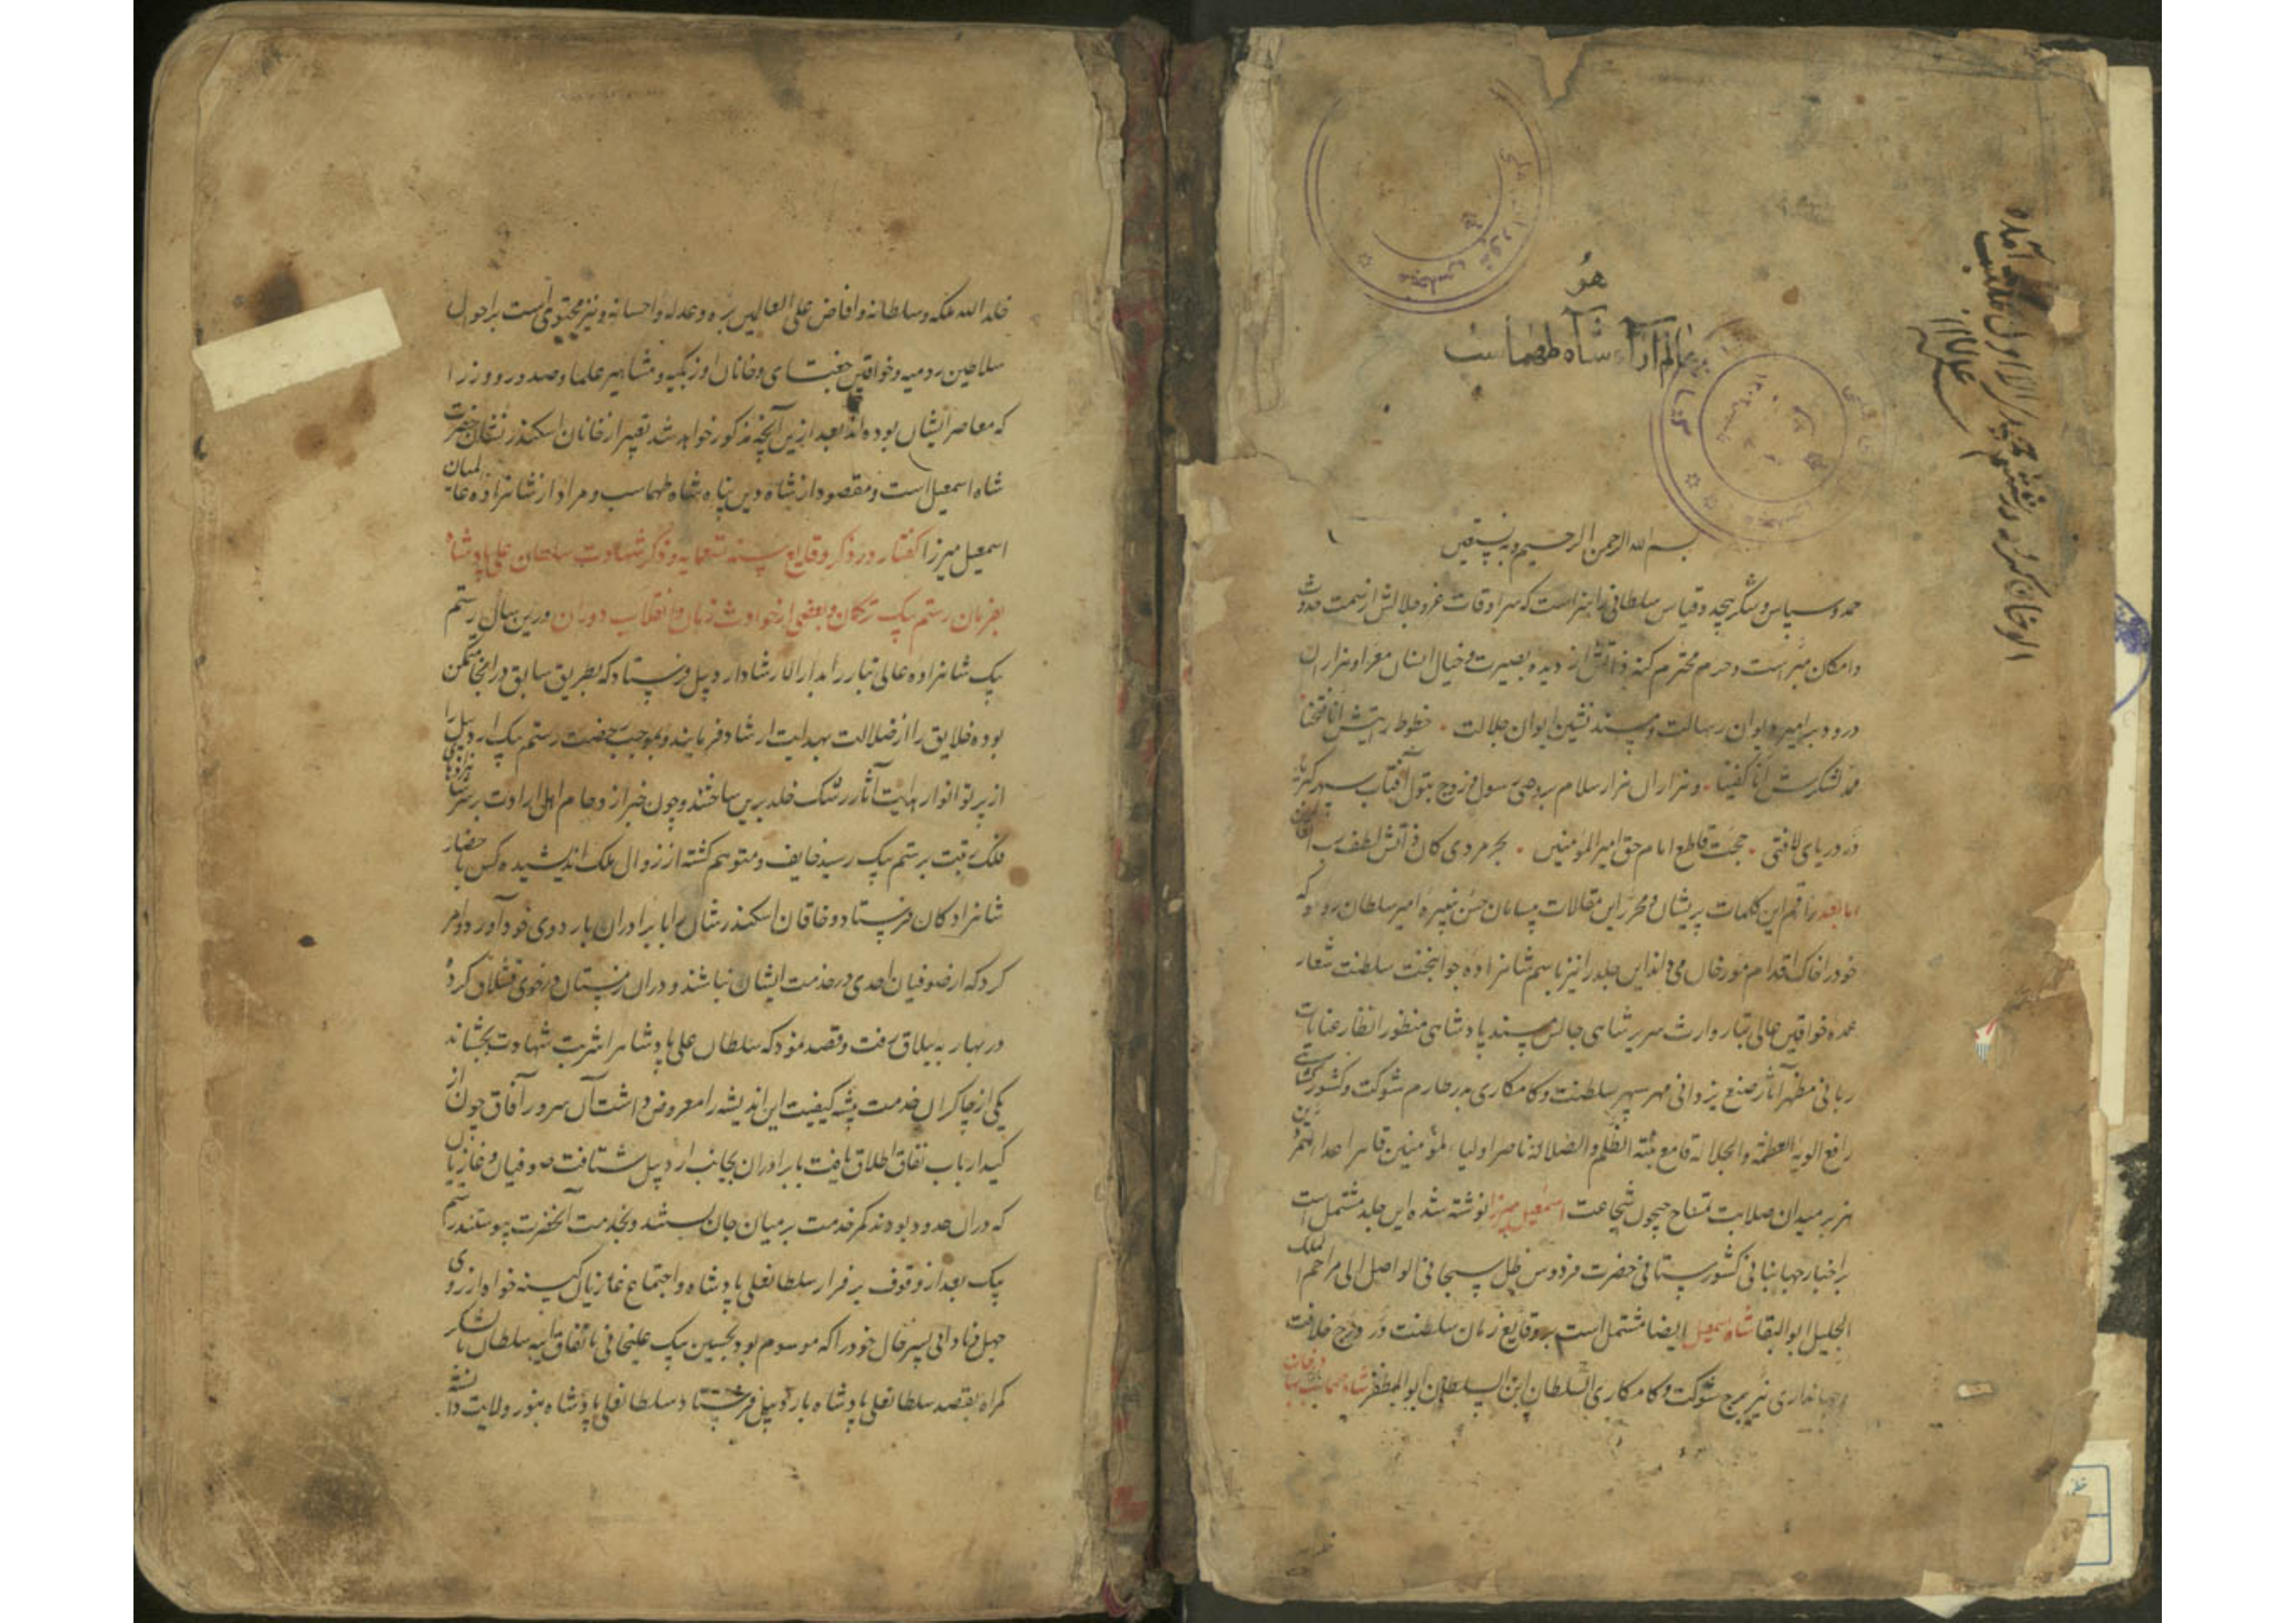 هو
عالم آراء شاه طهماسب
بسم الله الرحمن الرحیم و به نستعین
حمد و سپاس و شکر بیحد و قیاس سلطانی را سزاست که سرادقات عز و جلالش از سمت حدوث
و امکان مبراست و حرم محترم کنه ذاتش از دیده بصیرت و خیال انسان معرا و هزاران
درود بر امیر دیوان رسالت و مسند نشین ایوان جلالت خطوط رایتش انا فتحنا
مدد لشکرش انا کفینا و هزاران هزار سلام بر وصی رسول و زوج بتول آفتاب سپهر
در دریای لافتی حجت قاطع امام حق امیر المؤمنین بحر مردی کان فتوت لطف رب
اما بعد راقم این کلمات پریشان و محرر این مقالات بیسامان حسن نبیره امیر سلطان روملو که
خود را خاک اقدام مورخان می داند این جلد را نیز باسم شاهزاده جوانبخت سلطنت شعار
عمده خواقین عالی تبار وارث سریر شاهی جالس مسند پادشاهی منظور انظار عنایات
ربانی مظهر آثار صنع یزدانی مهر سپهر سلطنت و کامکاری بدر طارم شوکت و کشورگشایی
رافع الویة العظمة و الجلالة قامع بنیة الظلم و الضلالة ناصر اولیاء المؤمنین قاهر اعداء
هزبر میدان صلابت شجاعت اسمعیل میرزا نوشته شده این جلد مشتمل است
بر اخبار جهانبانی کشورستانی حضرت فردوس ظل سبحانی الواصل الی مراحم الملک
الجلیل ابو البقا شاه اسمعیل ایضا مشتمل است بر وقایع زمان سلطنت در درج خلافت
و جهانداری نیر برج شوکت و کامکاری السلطان ابن السلطان ابو المظفر شاه طهماسب
خلد الله ملکه و سلطانه و افاض علی العالمین بره و عدله و احسانه و نیز محتوی است بر احوال
سلاطین رومیه و خواقین جغتای و خانان اوزبکیه و مشاهیر علما و صدور و وزرا
که معاصر ایشان بوده اند بعد ازین آنچه مذکور خواهد شد تعبیر از خاقان اسکندر نشان حضرت
شاه اسمعیل است و مقصود از شاه دین پناه شاه طهماسب و مراد از شاهزاده عالمیان
اسمعیل میرزا گفتار در ذکر وقایع سنه تسعمایه و ذکر شهادت سلطان علی پادشاه
بفرمان رستم بیک ترکمان و بعضی از حوادث زمان و انقلاب دوران درین سال رستم
بیک شاهزاده عالی تبار را بدار الارشاد اردبیل فرستاد که بطریق سابق در آنجا متمکن
بوده خلایق را از ضلالت بهدایت ارشاد فرمایند و بموجب رخصت رستم بیک اردبیل را
از پرتو انوار هدایت آثار رشک خلد برین ساختند و چون خبر ازدحام اهل ارادت بر سر شاهزادهای
فلک رتبت برستم بیک رسید خایف و متوهم گشته از زوال ملک اندیشیده کس باحضار
شاهزادگان فرستاد و خاقان اسکندر شان را با برادران باردوی خود آورد و امر
کرد که از صوفیان احدی در خدمت ایشان نباشند و در آن زمستان در خوی قشلاق کرده
در بهار به ییلاق رفت و قصد نمود که سلطان علی پادشاه را شربت شهادت بچشاند
یکی از چاکران خدمت پیشه کیفیت این اندیشه را معروض داشت آن سرور آفاق چون از
کید ارباب نفاق اطلاق یافت با برادران بجانب اردبیل شتافت صوفیان و غازیان
که در آن حدود بودند کمر خدمت بر میان جان بستند و بخدمت آنحضرت پیوستند رستم
بیک بعد از وقوف بر فرار سلطانعلی پادشاه و اجتماع غازیان کینه خواه از روی
جهل و نادانی پسر خال خود را که موسوم بود بحسین بیک علیخانی باتفاق ایبه سلطان با لشکر
گمراه بقصد سلطانعلی پادشاه باردبیل فرستاد سلطانعلی پادشاه بنور ولایت دانسته